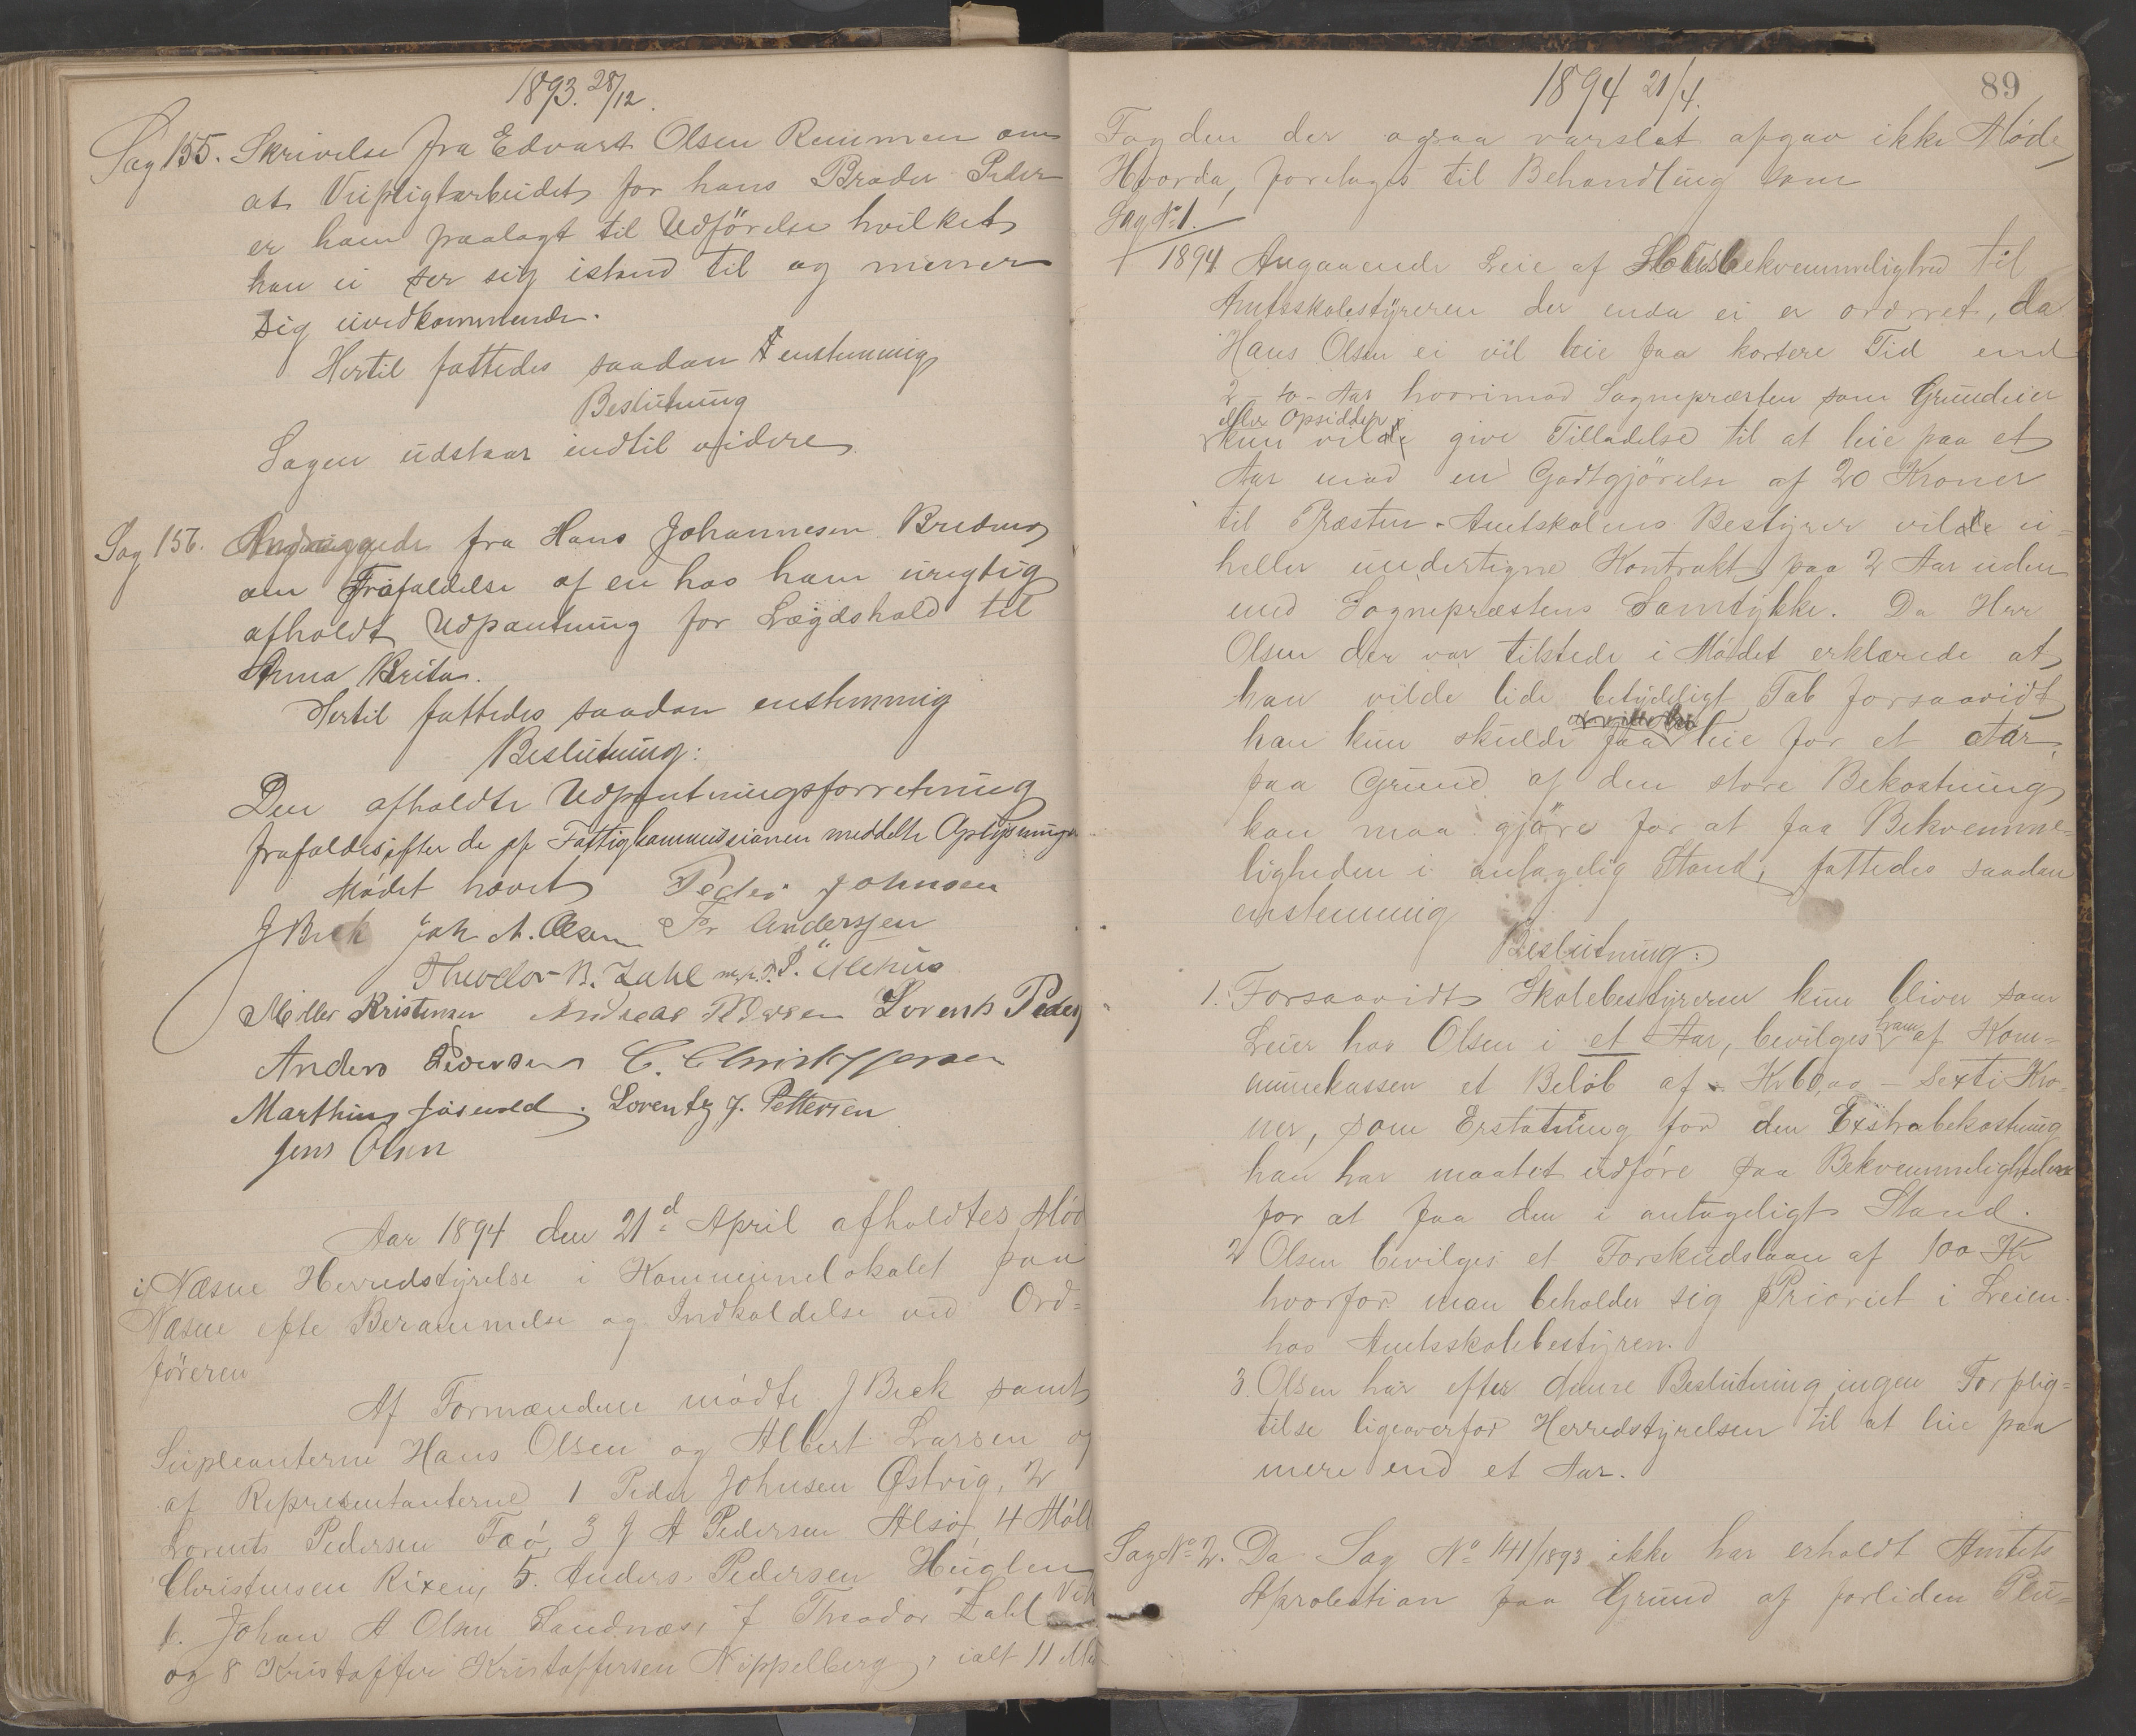 1893. 28/12.
Sag 155. Skrivelse fra Edvart Olsen Remmen om
at Veipligtarbeidet for hans Broder Peder
er ham paalagt til Udförelse hvilket
han ei ser sig istand til og mener
sig uvedkommende.
Hertil fattedes saadan enstemmig
Beslutning
Sagen udstaar indtil videre
Sag 156. fra Hans Johannesen Bredvig
om Frafaldelse af en hos ham urigtig
afholdt Udpantning for Lægdshold til
Anna Brita.
Hertil fattedes saadan enstemmig
Beslutning:
Den afholdte Udpantningsforretning
frafaldes efter de af Fattigkommissionen meddelte Oplysninger
Mødet hævet Peder Johnsen
J Beck Joh A. Olsen Fr Anderssen
Theodor B. Zahl P.
Møller Kristensen Andreas Lorents Peder
Anders Pedersen C. Christoffersen
Marthin Lorentz J. Pettersen
Jens Olsen
Aar 1894 den 21d April afholdtes Mød
i Næsne Herredstyrelse i Kommunelokalet paa
Næsne efte Berammelse og Indkaldelse ved Ord=
föreren
Af Formændene mødte J Beck samt
Supleanterne Hans Olsen og Albert Larsen og
af Representanterne 1 Peder Johnsen Østvig, 2
Lorents Pedersen 3 J A Pedersen Alsø, 4 Møll
Christensen 5. Anders Pedersen Huglen
6. Johan A Olsen Sandnæs, 7 Theodor Zahl Vik
og 8 Kristoffer Kristoffersen Nippelberg, ialt 11
1894 21/4.
89
Fogden der ogsaa varslet afgav ikke Møde,
Hvorda, foretoges til Behandling som
Sag No 1.
1894 Angaaende Leie af Husbekvemmelighed til
Amtsskolestÿreren der enda ei er ordnet, da
Hans Olsen ei vil leie paa kortere Tid end
2 - to - Aar hvorimod Sognepræsten som Grundeier
eller Opsidder
kun vilde give Tilladelse til at leie paa et
Aar mod en Godtgjörelse af 20 Kroner
til Præsten. Amtskolens Bestÿrer vilde ei=
heller undertegne Kontrakt paa 2 Aar uden
med Sognepræstens Samtÿkke. Da Herr
Olsen der var tilstede i Mödet erklærede at
han vilde lide betÿdeligt Tab forsaavidt
han kun skulde faa leie for et Aar,
paa Grund af den store Bekostning
han maa gjöre for at faa Bekvemme=
ligheden i antagelig Stand, fattedes saadan
enstemmig
Beslutning:
1. Forsaavidt Skolebestÿreren kun bliver som
Leier hos Olsen i et Aar, bevilges ham af Kom=
munekassen et Belöb af Kr 60,00 - Sexti Kro=
ner, som Erstatning for den Exstrabekostning
han har maatet udföre paa Bekvemmeligheden
for at faa den i antageligt Stand.
2 Olsen bevilges et Forskudslaan af 100 Kr
hvorfor man beholder sig Prioriet i Leien
hos Amtsskolebestÿren.
3. Olsen har efter denne Beslutning ingen Forplig=
telse ligeoverfor Herredstÿrelsen til at leie paa
mere end et Aar.
Sag No 2. Da Sag No 141/1893 ikke har erholdt Amtets
Aprobation paa Grund af forliden